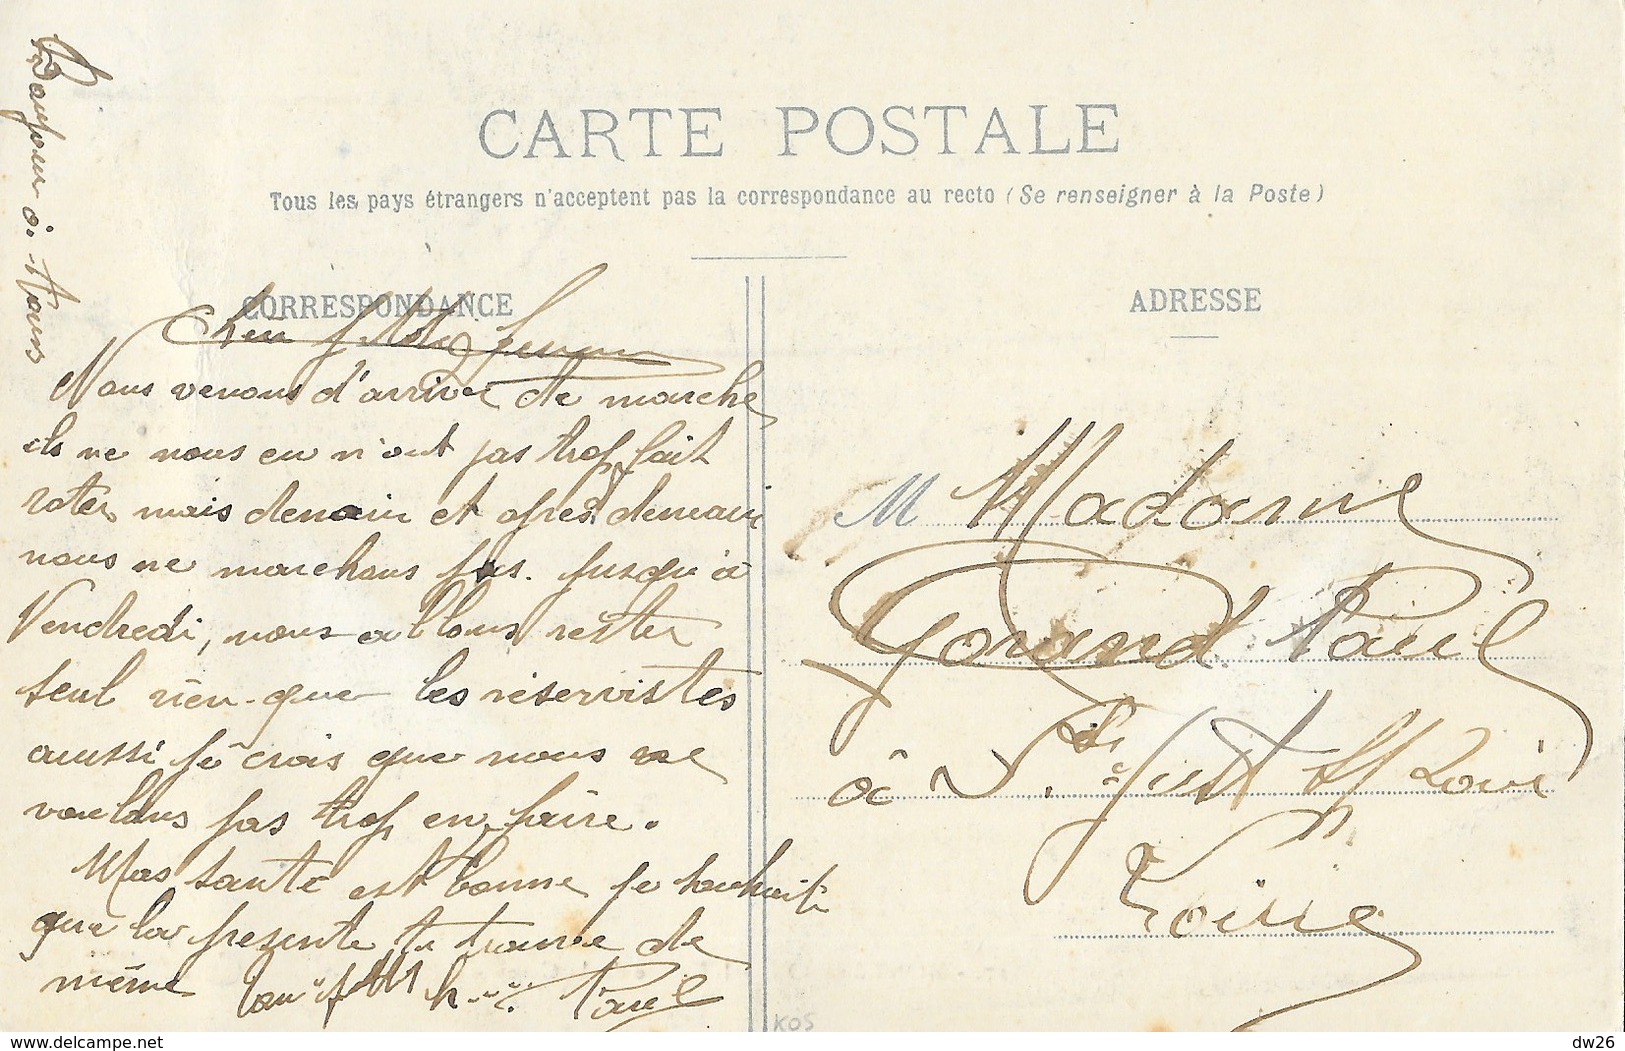 Bonjour à tous
CARTE POSTALE
Tous les pays étrangers n'acceptent pas la correspondance au recto (Se renseigner à la Poste)
CORRESPONDANCE
ADRESSE
Nous venons d'arriver de marche
ils ne nous en n'ont pas trop fait
roter mais demain et après demain
nous ne marchons pas. jusqu'à
Vendredi, nous allons rester
seul rien que les réservistes
aussi je crois que nous ne
voulons pas trop en faire.
Mas santé est bonne je souhaite
que la présente te trouve de
même
Paul
M Madame
Gorand Paul
à St Just
Loire
KOS
www.delcampe.net
dw26